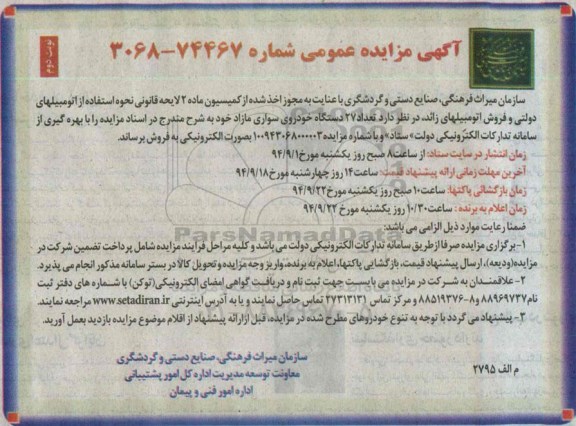 آگهی مزایده عمومی شماره ۷۴۴۶۷-۳۰۶۸
نوبت دوم
سازمان میراث فرهنگی، صنایع دستی و گردشگری با عنایت به مجوز اخذ شده از کمیسیون ماده ۲ لایحه قانونی نحوه استفاده از اتومبیلهای
دولتی و فروش اتومبیلهای زائد، در نظر دارد تعداد ۲۷ دستگاه خودروی سواری مازاد خود به شرح مندرج در اسناد مزایده را با بهره گیری از
سامانه تدارکات الکترونیکی دولت «ستاد» و با شماره مزایده ۱۰۰۹۴۳۰۶۸۰۰۰۰۰۳ بصورت الکترونیکی به فروش برساند.
زمان انتشار در سایت ستاد: از ساعت ۸ صبح روز یکشنبه مورخ ۹۴/۹/۱
آخرین مهلت زمانی ارائه پیشنهاد قیمت: ساعت ۱۴ روز چهارشنبه مورخ ۹۴/۹/۱۸
زمان بازگشائی پاکتها: ساعت ۱۰ صبح روز یکشنبه مورخ ۹۴/۹/۲۲
زمان اعلام به برنده: ساعت ۱۰/۳۰ روز یکشنبه مورخ ۹۴/۹/۲۲
ضمنا رعایت موارد ذیل الزامی می باشد:
۱- برگزاری مزایده صرفا از طریق سامانه تدارکات الکترونیکی دولت می باشد و کلیه مراحل فرایند مزایده شامل پرداخت تضمین شرکت در
مزایده (ودیعه)، ارسال پیشنهاد قیمت، بازگشایی پاکتها، اعلام به برنده، واریز وجه مزایده و تحویل کالا در بستر سامانه مذکور انجام می پذیرد.
۲- علاقمندان به شرکت در مزایده می بایست جهت ثبت نام و دریافت گواهی امضای الکترونیکی (توکن) با شماره های دفتر ثبت
نام ۸۸۹۶۹۷۳۷ و ۸-۸۸۵۱۹۳۷۶ و مرکز تماس (۲۷۳۱۳۱۳۱) تماس حاصل نمایند و یا به آدرس اینترنتی www.setadiran.ir مراجعه نمایند.
۳- پیشنهاد می گردد با توجه به تنوع خودروهای مطرح شده در مزایده، قبل از ارائه پیشنهاد از اقلام موضوع مزایده بازدید بعمل آورید.
سازمان میراث فرهنگی، صنایع دستی و گردشگری
معاونت توسعه مدیریت اداره کل امور پشتیبانی
اداره امور فنی و پیمان
م الف ۲۷۹۵
ParsNamadData